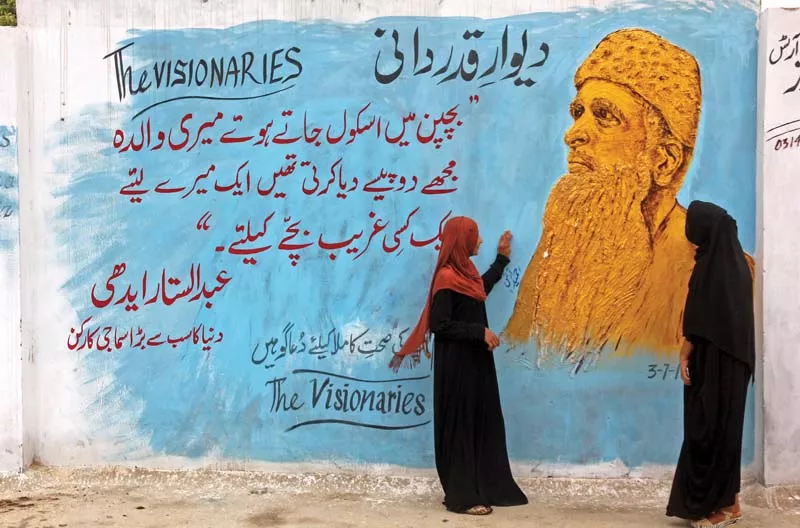 The VISIONARIES
دیوارِ قدردانی
"بچپن میں اسکول جاتے ہوئے میری والدہ
مجھے دو پیسے دیا کرتی تھیں ایک میرے لیئے
ایک کسی غریب بچّے کیلئے۔"
عبدالستار ایدھی
دنیا کا سب سے بڑا سماجی کارکن
کی صحتِ کاملا کیلئے دُعا گو ہیں
The Visionaries
3-7-1
آرٹس
0314